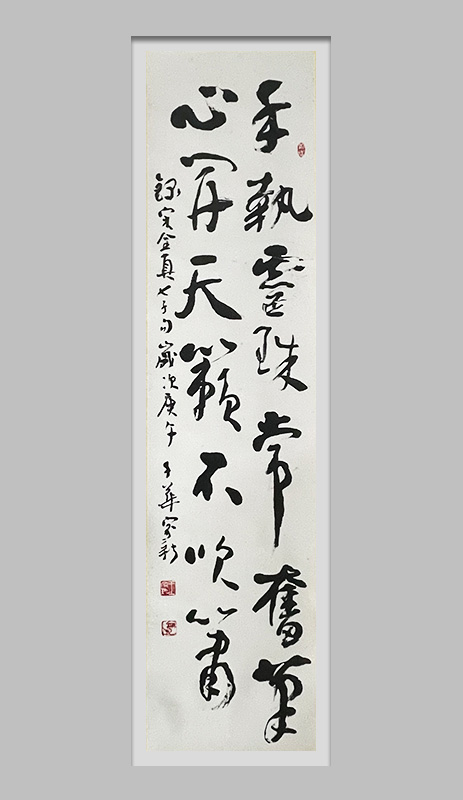 手執靈珠常奮筆
心開天籟不吹簫
錄宋全真七子句歲次庚午